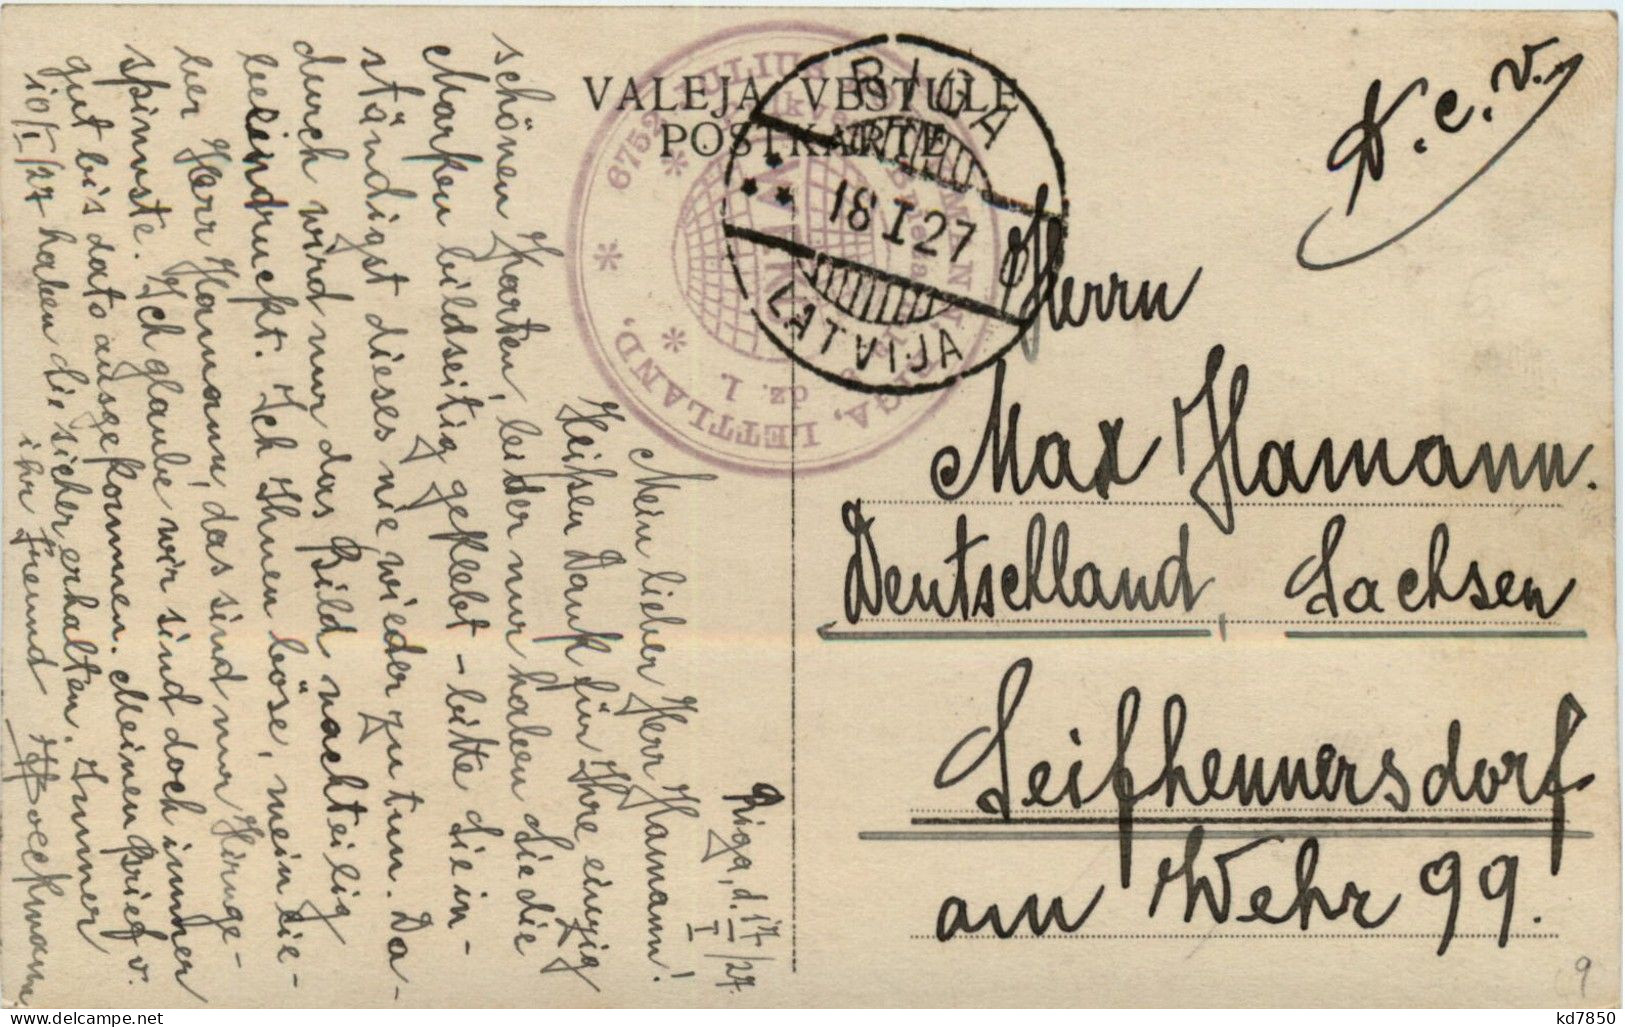 VALEJA VĒSTULE
POSTKARTE
RIGA
18 I 27
LATVIJA
6752 JULIUS
RIGA, LETTLAND,
dz. 1.
T.c.v.
Herrn
Max Hamann.
Deutschland, Sachsen
Seifhennersdorf
am Wehr 99.
Riga, d. 17/I/27.
Mein lieber Herr Hamann!
Heißen Dank für Ihre einzig
schönen Karten, leider nur haben Sie die
Marken bildseitig geklebt - bitte Sie in-
ständigst dieses nie wieder zu tun. Da-
durch wird nur das Bild nachteilig
beeindruckt. Ich Ihnen böse, mein lie-
ber Herr Hamann, das sind nur Hirnge-
spinnste. Ich glaube wir sind doch immer
gut bis dato ausgekommen. Meinen Brief v.
10/I/27 haben Sie sicher erhalten. Immer
ihr Freund Boeckmann.
9
kd7850